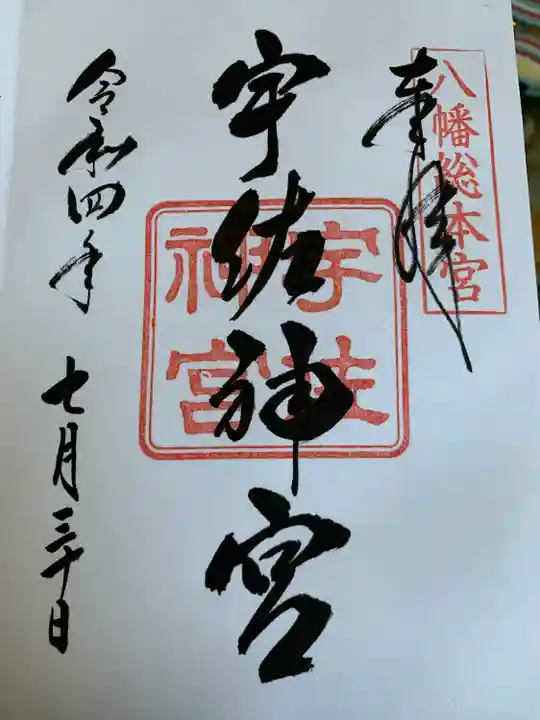 奉拝
八幡総本宮
宇佐神宮
宇佐神宮
令和四年 七月三十日